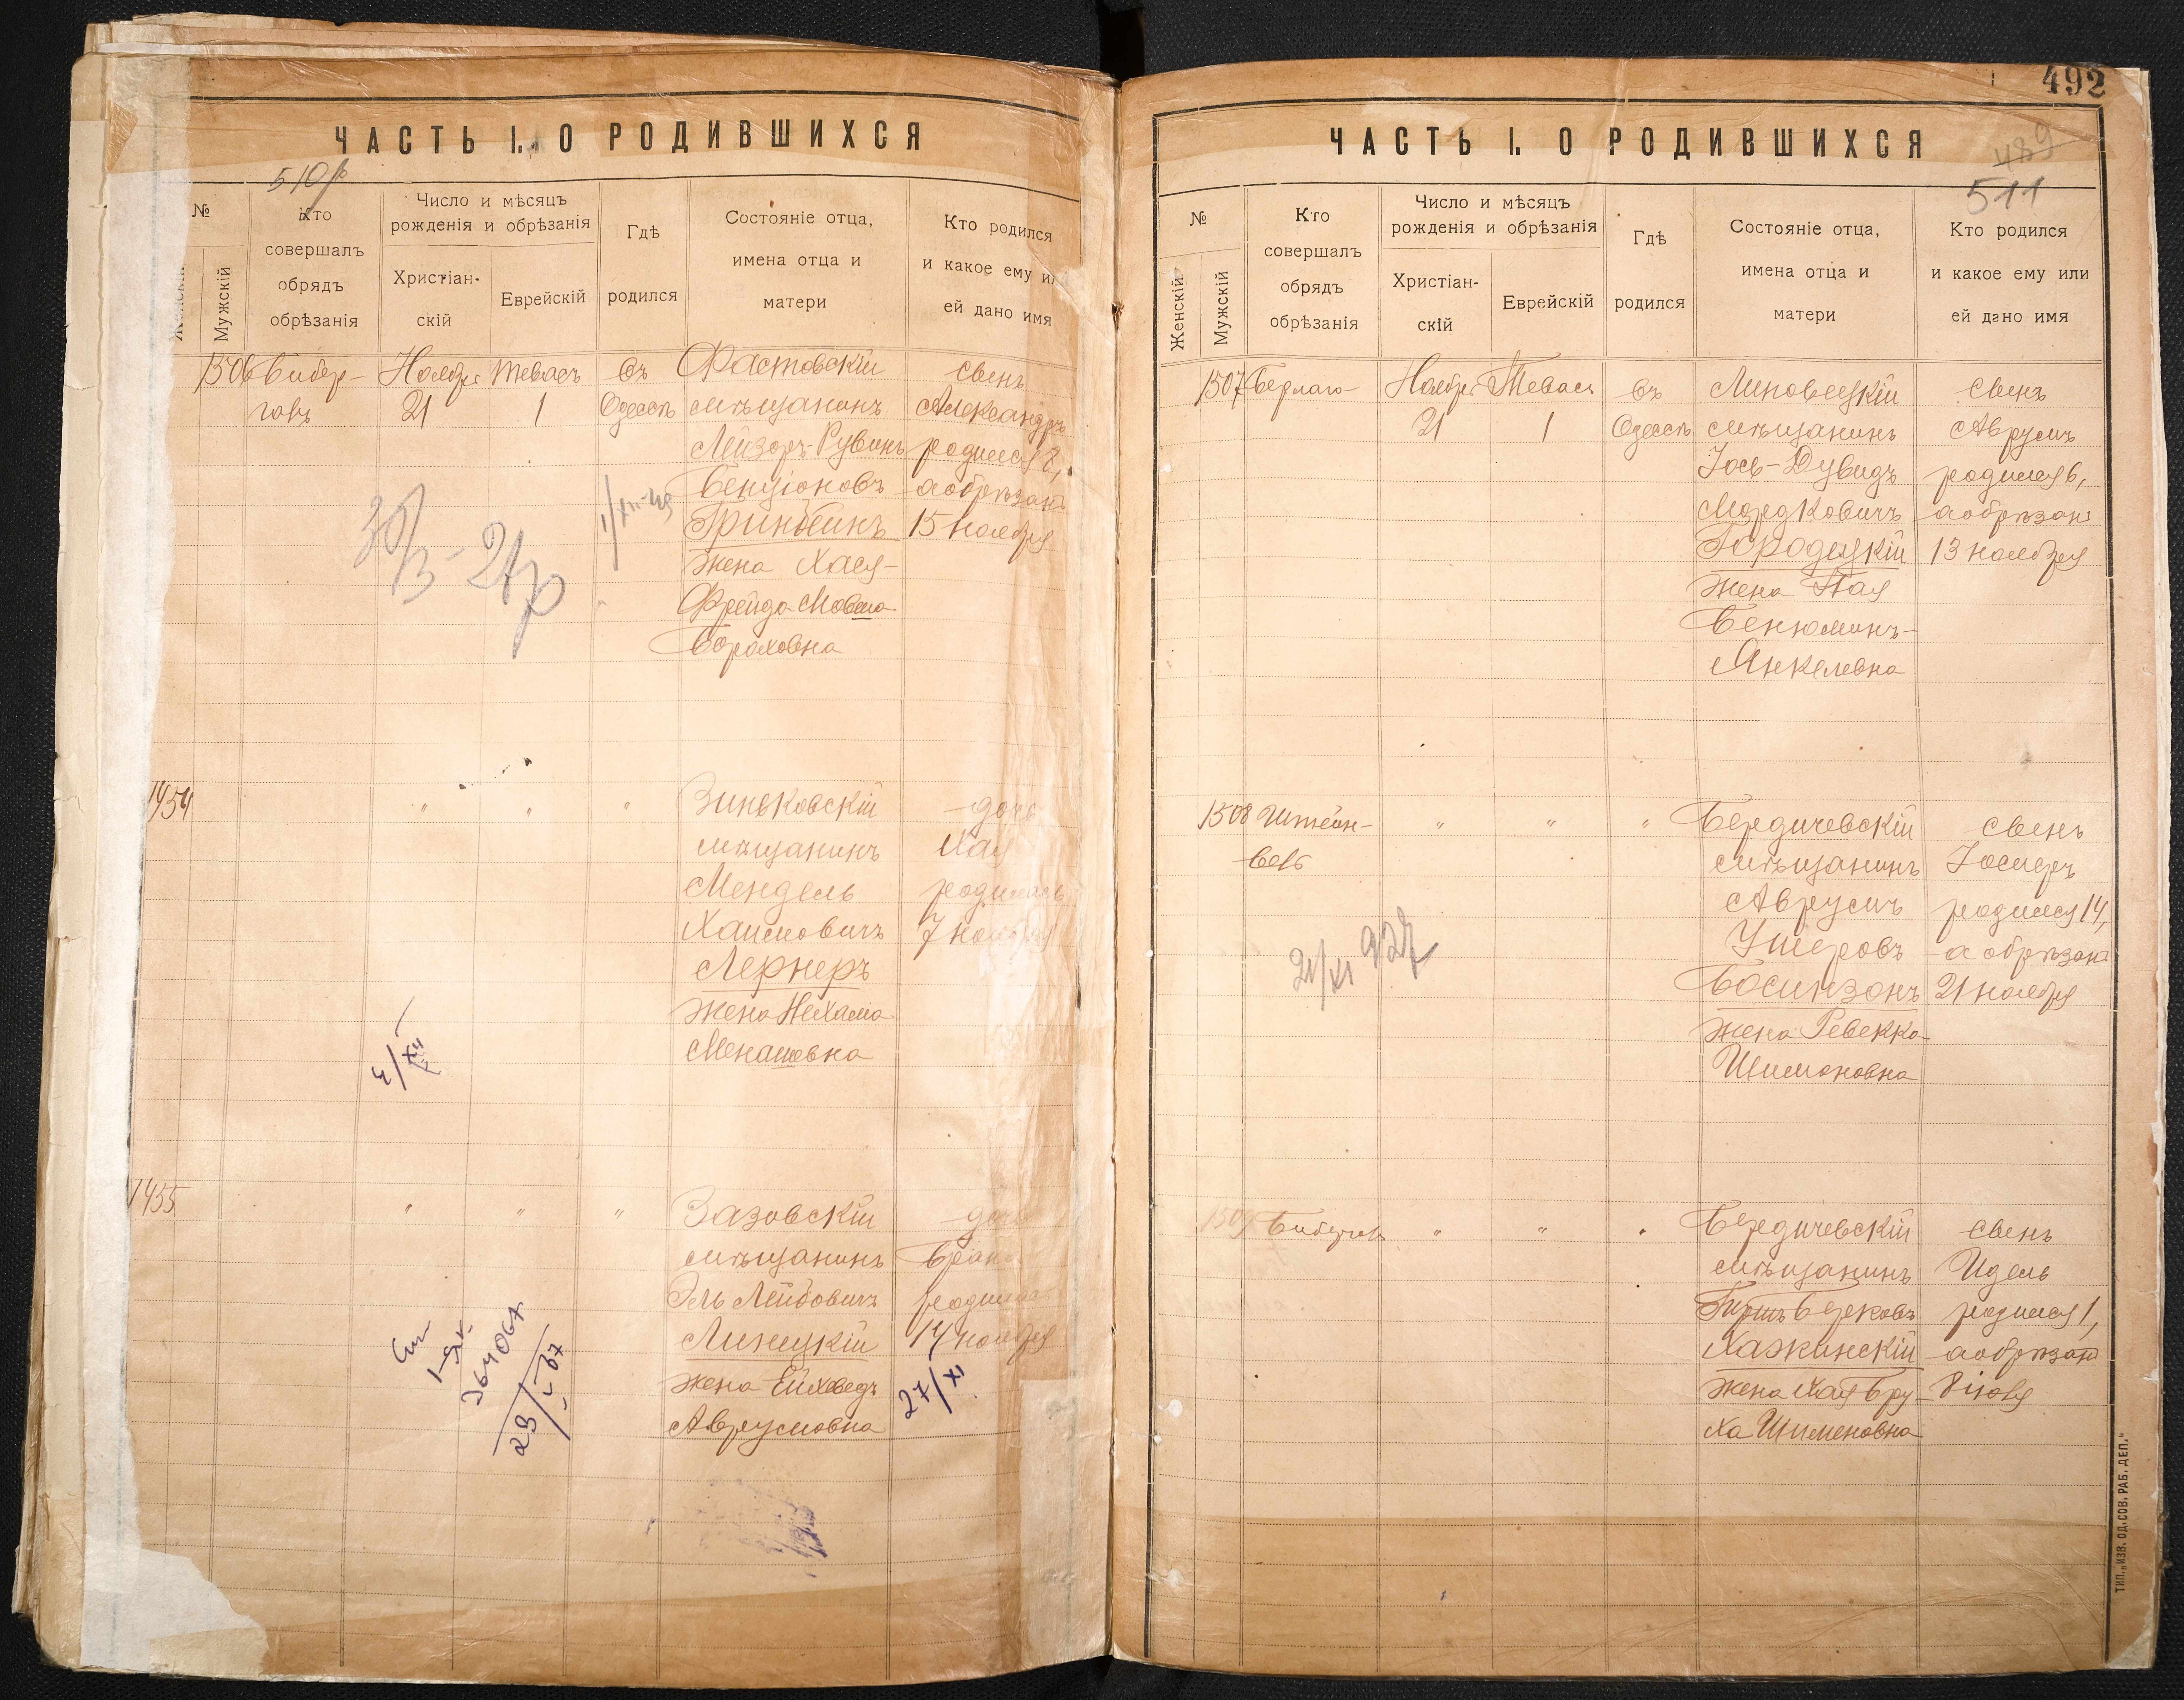 ЧАСТЬ I. О РОДИВШИХСЯ
510
№
Женскій
Мужскій
Кто
совершалъ
обрядъ
обрѣзанія
Число и мѣсяцъ
рожденія и обрѣзанія
Христіан-
скій
Еврейскій
Гдѣ
родился
Состояніе отца,
имена отца и
матери
Кто родился
и какое ему и
ей дано имя
1506
Бибер-
галь
Ноября
21
Тевась
1
Въ
Одессѣ
Фастовскій
мѣщанинъ
Лейзоръ-Рувинъ
Бенціоновъ
жена Хася-
Фрейда
Бораховна
сынъ
Александръ
родился 8,
а обрѣзанъ
15 ноября
1454
"
"
"
Зиньковскій
мѣщанинъ
Мендель
Хаимовичъ
Лернеръ
жена Нехама
Менашовна
дочь
Хая
родилась
7 ноября
1455
"
"
"
мѣщанинъ
Эль Лейбовичъ
Линецкій
жена
Аврумовна
дочь
родилась
14 ноября
27/XI
ЧАСТЬ I. О РОДИВШИХСЯ
492
489
511
№
Женскій
Мужскій
Кто
совершалъ
обрядъ
обрѣзанія
Число и мѣсяцъ
рожденія и обрѣзанія
Христіан-
скій
Еврейскій
Гдѣ
родился
Состояніе отца,
имена отца и
матери
Кто родился
и какое ему или
ей дано имя
1507
Ноября
21
Тевась
1
Въ
Одессѣ
Липовецкій
мѣщанинъ
Іось-Дувидъ
Мордковичъ
Городецкій
жена
Бенюминъ-
Янкелевна
сынъ
Аврумъ
родился 6,
а обрѣзанъ
13 ноября
1508
Штейн-
"
"
"
Бердичевскій
мѣщанинъ
Аврумъ
Ушеровъ
жена Ревекка
Шимоновна
сынъ
родился 14,
а обрѣзанъ
21 ноября
1509
"
"
"
Бердичевскій
мѣщанинъ
Гершъ Берковъ
Хажинскій
жена Хая Бру-
ха Шименовна
сынъ
Идель
родился 1,
а обрѣзанъ
ТИП. „ИЗВ. ОД. СОВ. РАБ. ДЕП."